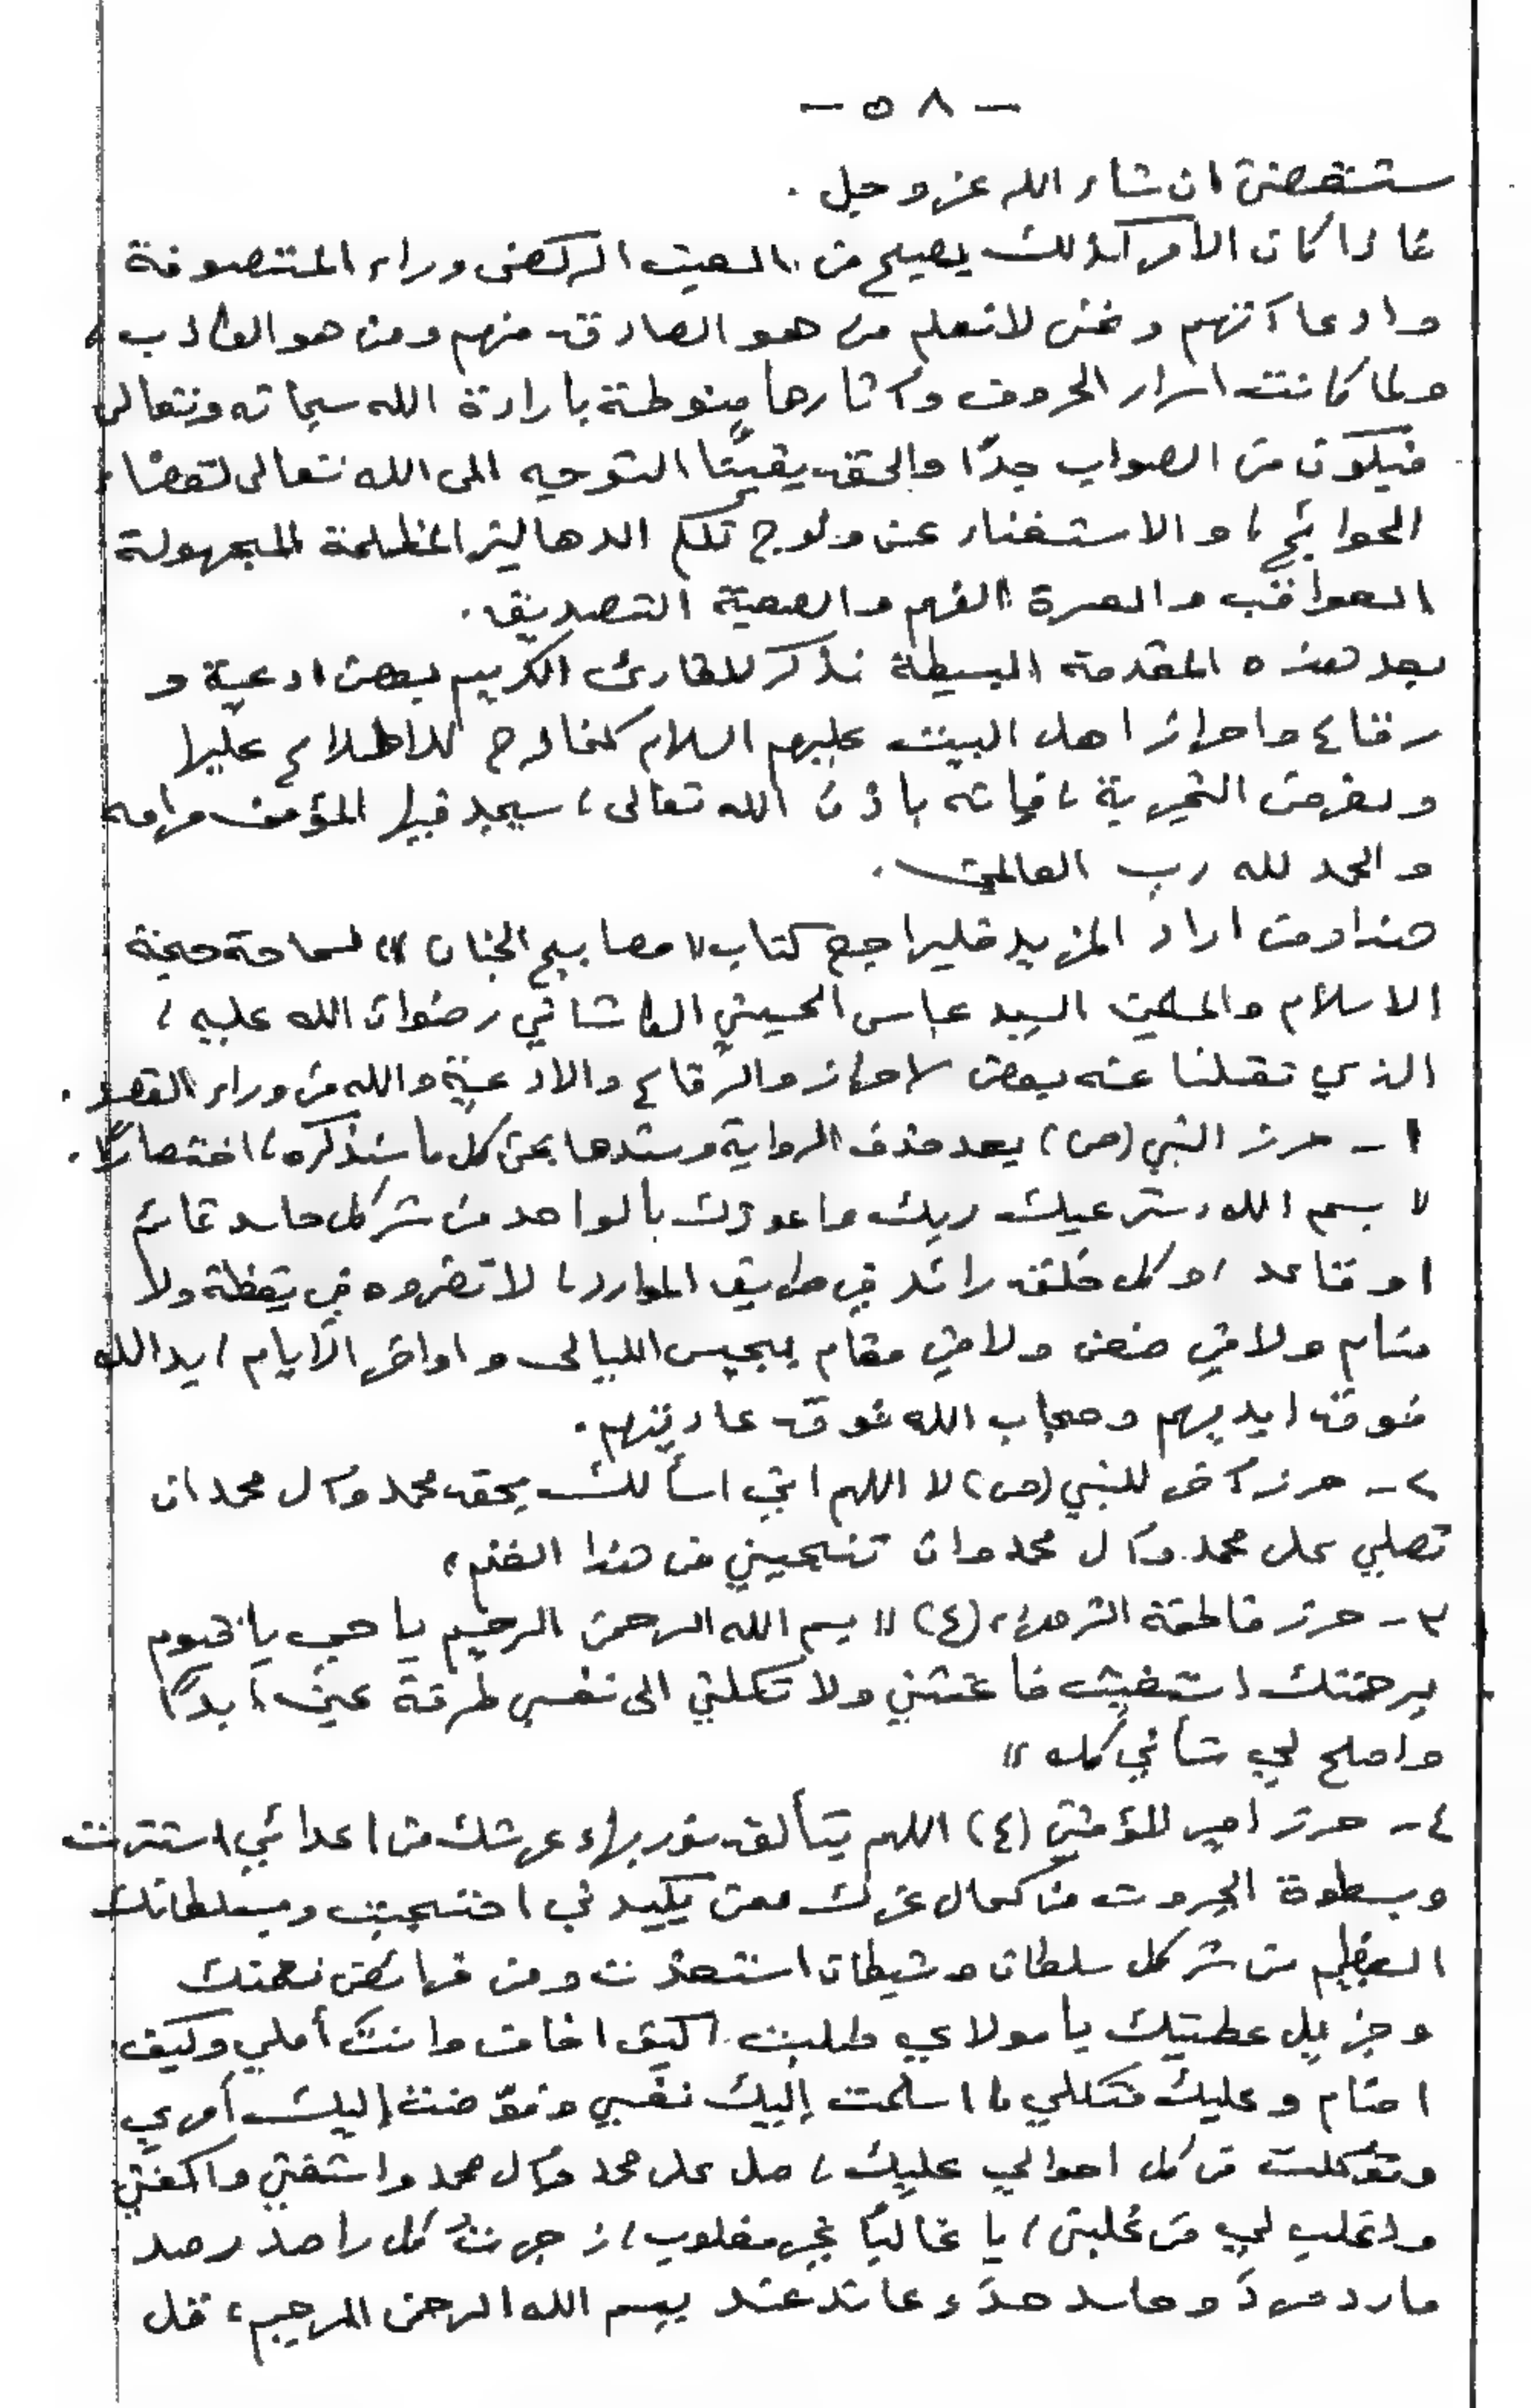 - ٥٨ -
ستنقضي ان شاء الله عز وجل .
فاذا كان الأمر كذلك يصبح من العبث الركض وراء المتصوفة
وادعاآتهم ونحن لا نعلم من هو الصادق منهم ومن هو الكاذب ،
ولما كانت اسرار الحروف وآثارها منوطة بارادة الله سبحانه وتعالى
فيكون من الصواب جدًا والحق يقينًا التوجيه الى الله تعالى لقضاء
الحوائج ، والاستغناء عن ولوج تلكم الدهاليز المظلمة المجهولة
العواقب والعسرة الفهم والصعبة التصديق .
بعد هذه المقدمة البسيطة نذكر للقارئ الكريم بعض ادعية و
رقاع واحراز اهل البيت عليهم السلام كنماذج للاطلاع عليها
ولغرض التجربة ، فإنه باذن الله تعالى ، سيجد فيها المؤمن مرامه
والحمد لله رب العالمين .
هذا ومن اراد المزيد فليراجع كتاب " مصابيح الجنان " لسماحة حجة
الاسلام والمسلمين السيد عباس الحسيني الكاشاني رضوان الله عليه ،
الذي نقلنا عنه بعض الاحراز والرقاع والادعية والله من وراء القصد .
١ - حرز النبي (ص) بعد حذف الرواية وسندها بحق كل ما سنذكره ، اختصارًا .
" بسم الله ، سترعيك ربك واعوذك بالواحد من شر كل حاسد قائم
او قاعد ، وكل خلق رائد في طريق الموارد ، لا تضروه في يقظة ولا
منام ولا في ضعن ولا في مقام بجيس الليالي واواخر الأيام ، يد الله
فوق ايديهم وحجاب الله فوق عاديتهم .
٢ - حرز آخر للنبي (ص) " اللهم اني اسألك بحق محمد وآل محمد ان
تصلي على محمد وآل محمد وان تنجيني من هذا الغم "
٣ - حرز فاطمة الزهراء (ع) " بسم الله الرحمن الرحيم يا حي يا قيوم
برحمتك استغيث فأغثني ولا تكلني الى نفسي طرفة عين ابدًا
واصلح لي شأني كله "
٤ - حرز امير المؤمنين (ع) اللهم بتألق نور بهاء عرشك من اعدائي استترت
وبسطوة الجبروت من كمال عزك ممن يكيدني احتجبت وبسلطانك
العظيم من شر كل سلطان وشيطان استعذت ومن فرائض نعمتك
وجزيل عطيتك يا مولاي طلبت ، كيف اخاف وانت أملي وكيف
اضام وعليك متكلي ، اسلمت إليك نفسي وفوّضت إليك أمري
وتوكلت في كل احوالي عليك ، صل على محمد وآل محمد واشفني واكفني
واغلب لي من غلبني ، يا غالبًا غير مغلوب ، زجرتُ كل راصد رصد
مارد مردَ وحاسد حسدَ وعاند عند ببسم الله الرحمن الرحيم ، قل